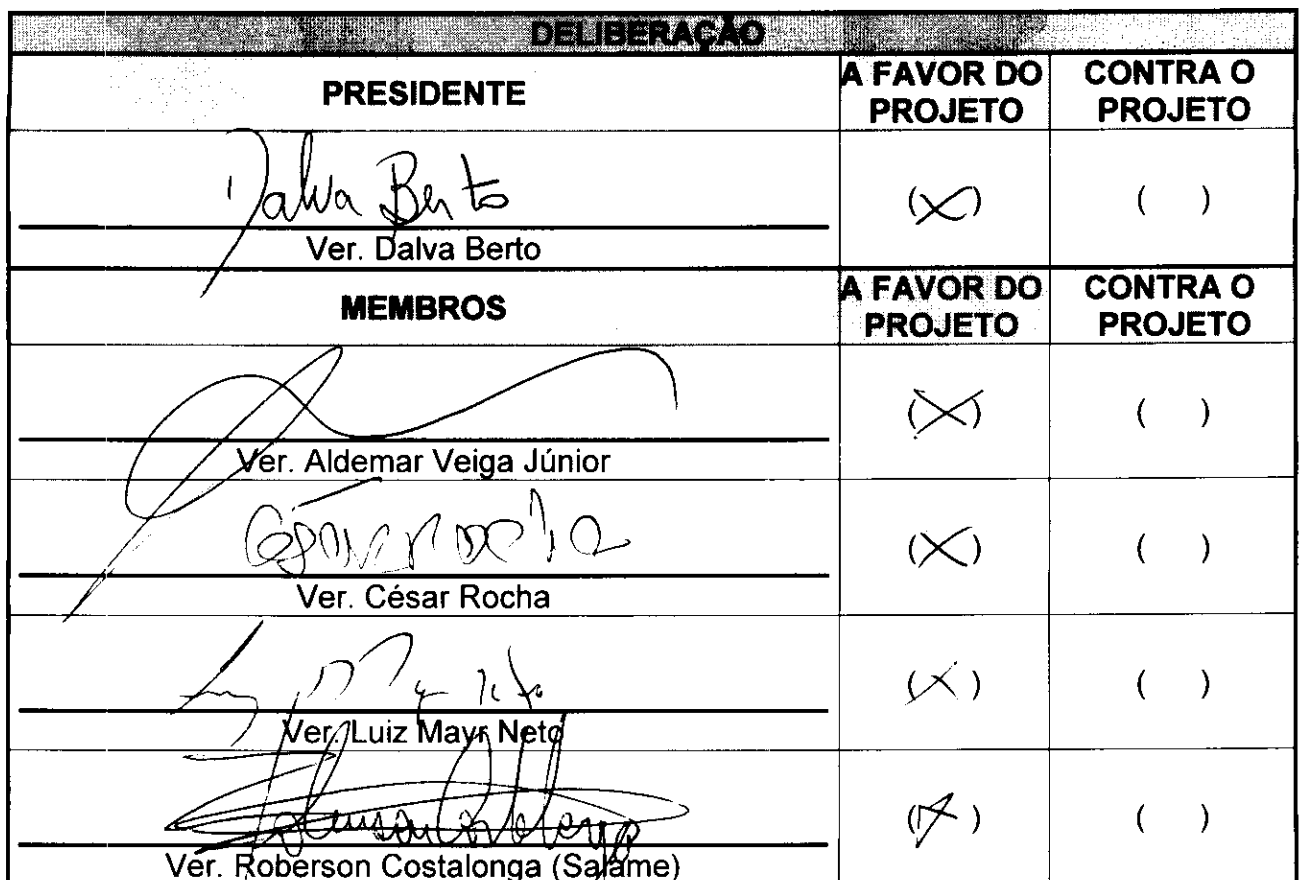 DELIBERAÇÃO
PRESIDENTE
A FAVOR DO PROJETO
CONTRA O PROJETO
Dalva Berto
(X)
( )
Ver. Dalva Berto
MEMBROS
A FAVOR DO PROJETO
CONTRA O PROJETO
(X)
( )
Ver. Aldemar Veiga Júnior
César Rocha
(X)
( )
Ver. César Rocha
(X)
( )
Ver. Luiz Mayr Neto
(X)
( )
Ver. Roberson Costalonga (Salame)